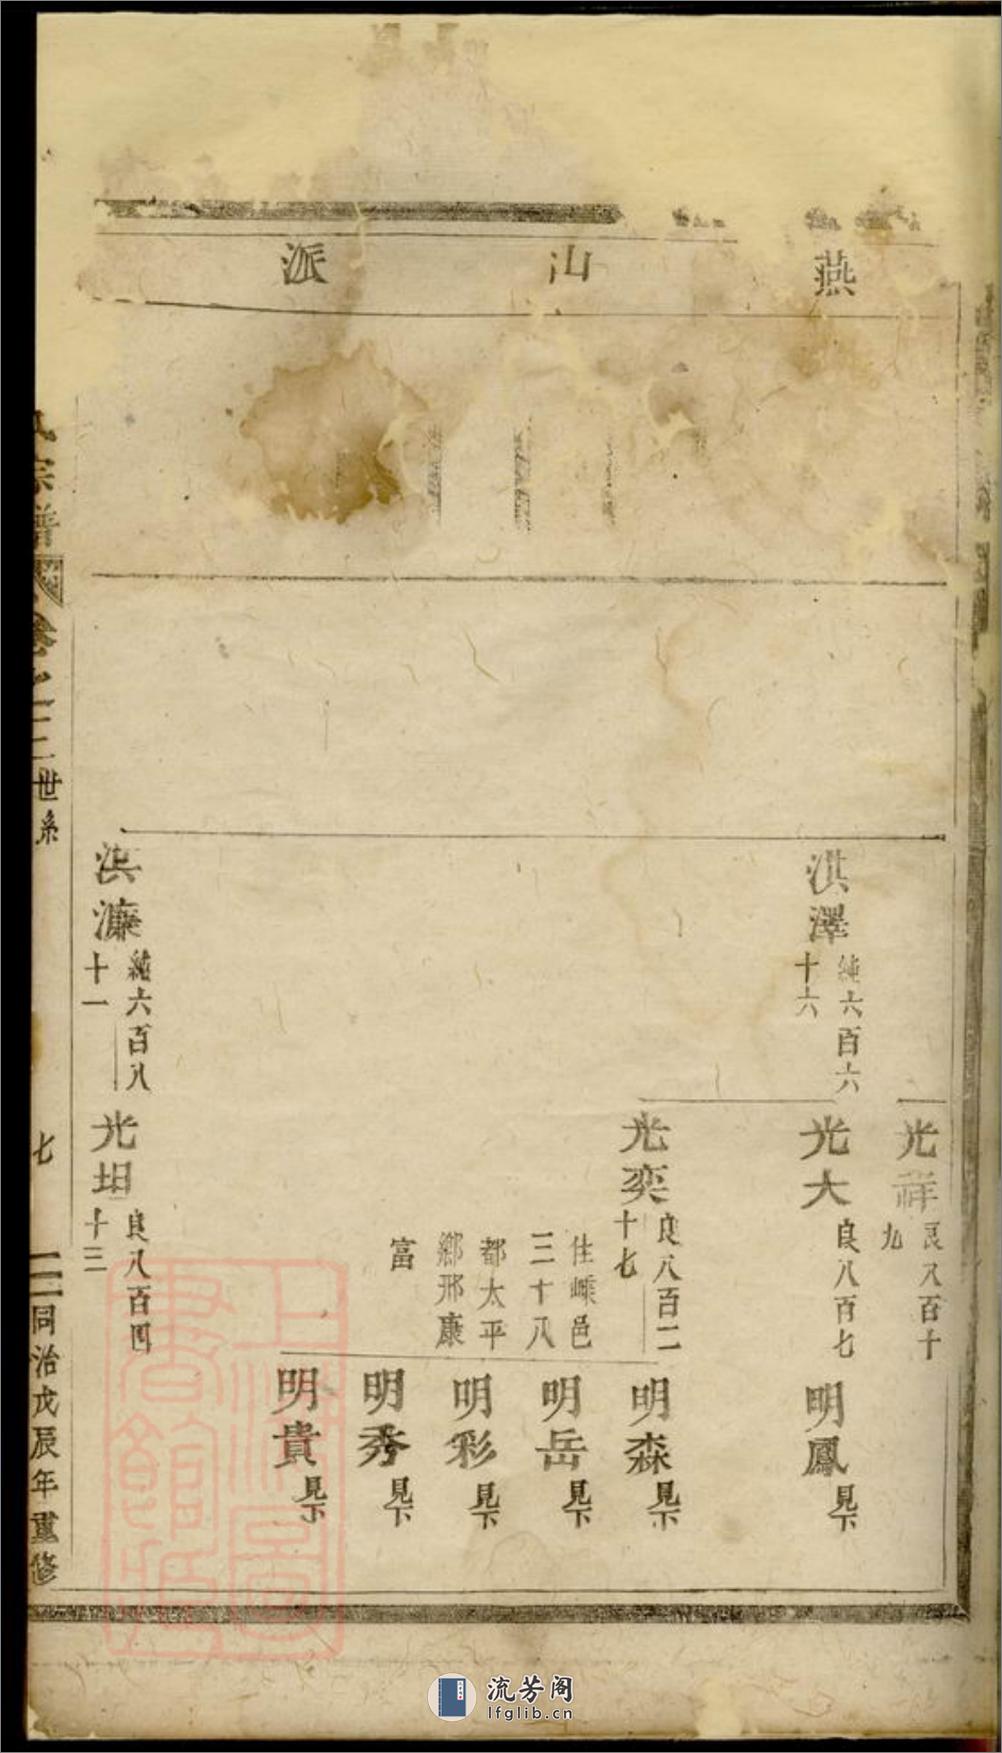 燕山派
光祥
良八百十
九
洪澤
純六百六
十六
光大
良八百七
明鳳
見下
光奕
良八百二
十七
住嵊邑
三十八
都太平
鄉邢康
富
明森
見下
明岳
見下
明彩
見下
明秀
見下
明貴
見下
洪濂
純六百八
十一
光坦
良八百四
十三
宗譜
卷之二
世系
七
同治戊辰年重修
上海圖書館藏
流芳阁
lfglib.cn